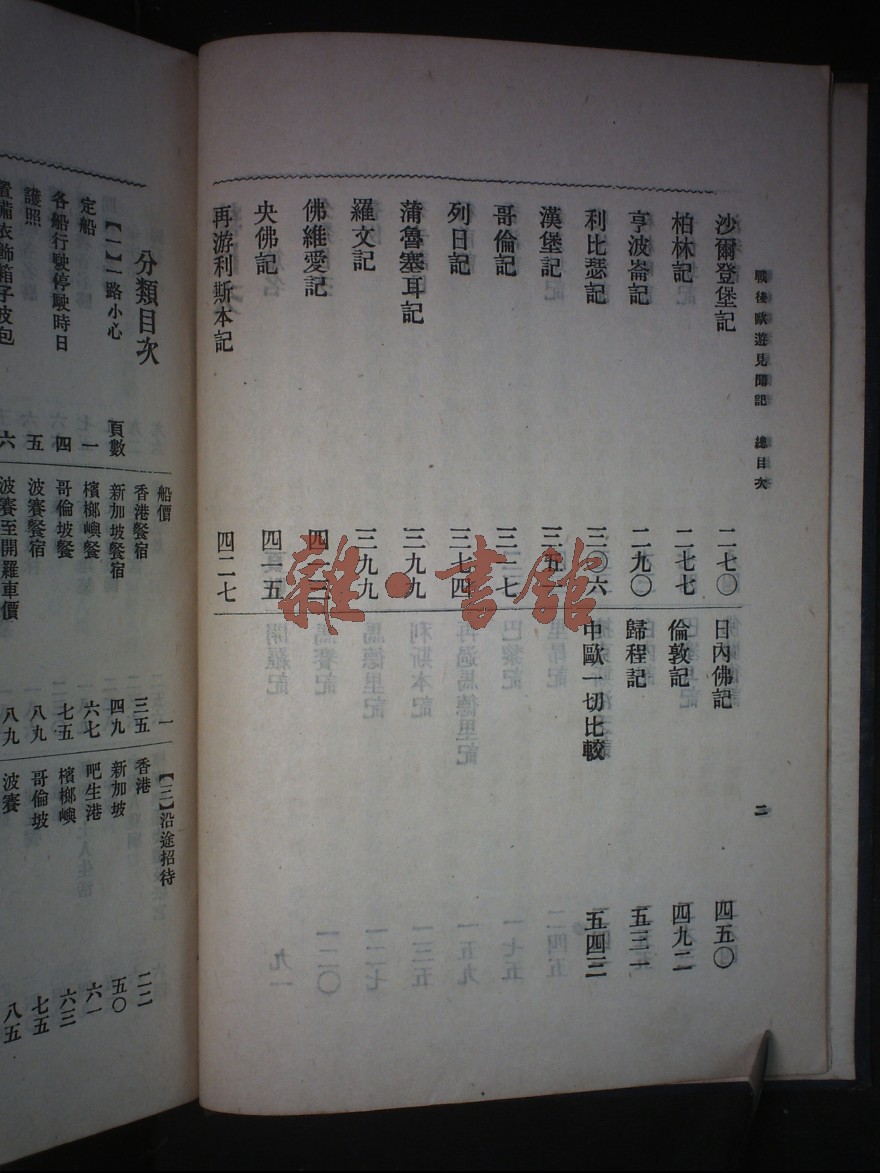 戰後歐遊見聞記 總目次
二
沙爾登堡記 二七〇
柏林記 二七七
亨波崙記 二九〇
利比瑟記 三〇六
漢堡記
哥倫記
列日記 三七四
蒲魯塞耳記 三九九
羅文記 三九九
佛維愛記
央佛記 四一五
再游利斯本記 四二七
日內佛記 四五〇
倫敦記 四九二
歸程記 五三一
中歐一切比較 五四三
雜·書館
分類目次
頁數
【一】一路小心
定船 一
各船行駛停駛時日 四
護照 五
置備衣飾箱子皮包 六
船價 一
香港餐宿 三五
新加坡餐宿 四九
檳榔嶼餐 六七
哥倫坡餐 七五
波賽餐宿 八九
波賽至開羅車價 八九
【三】沿途招待
香港 二二
新加坡 五〇
吧生港 六一
檳榔嶼 六三
哥倫坡 七五
波賽 八五